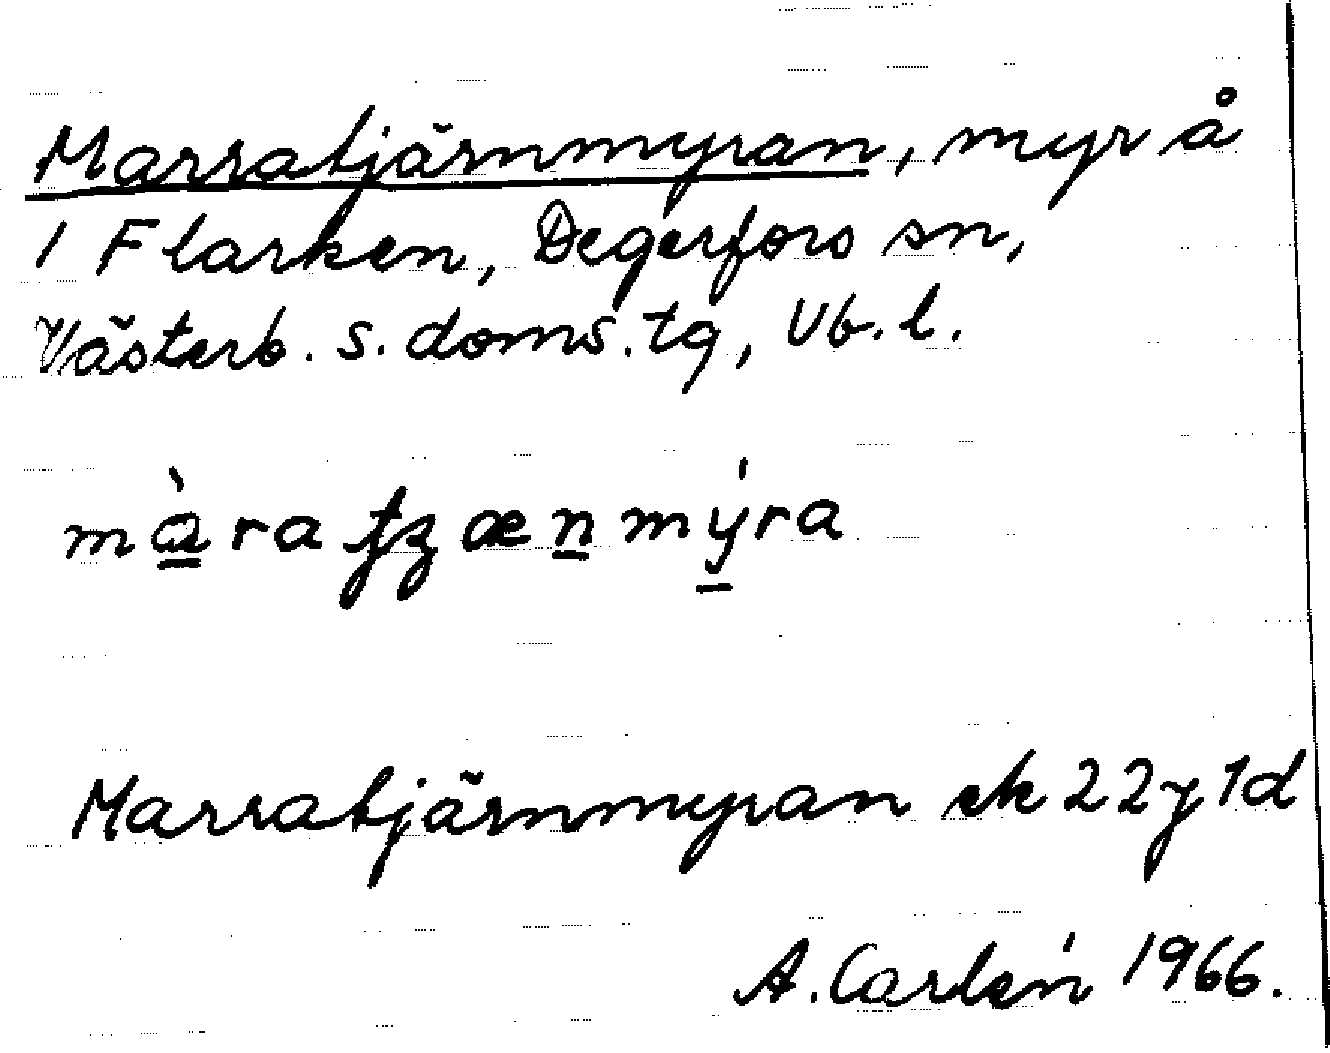 Marratjärnmyran, myr å
1 Flarken, Degerfors sn,
Västerb. s. doms. tg, Vb. l.
Marratjärnmyran ek 22 j 1d
A. Carlén 1966.